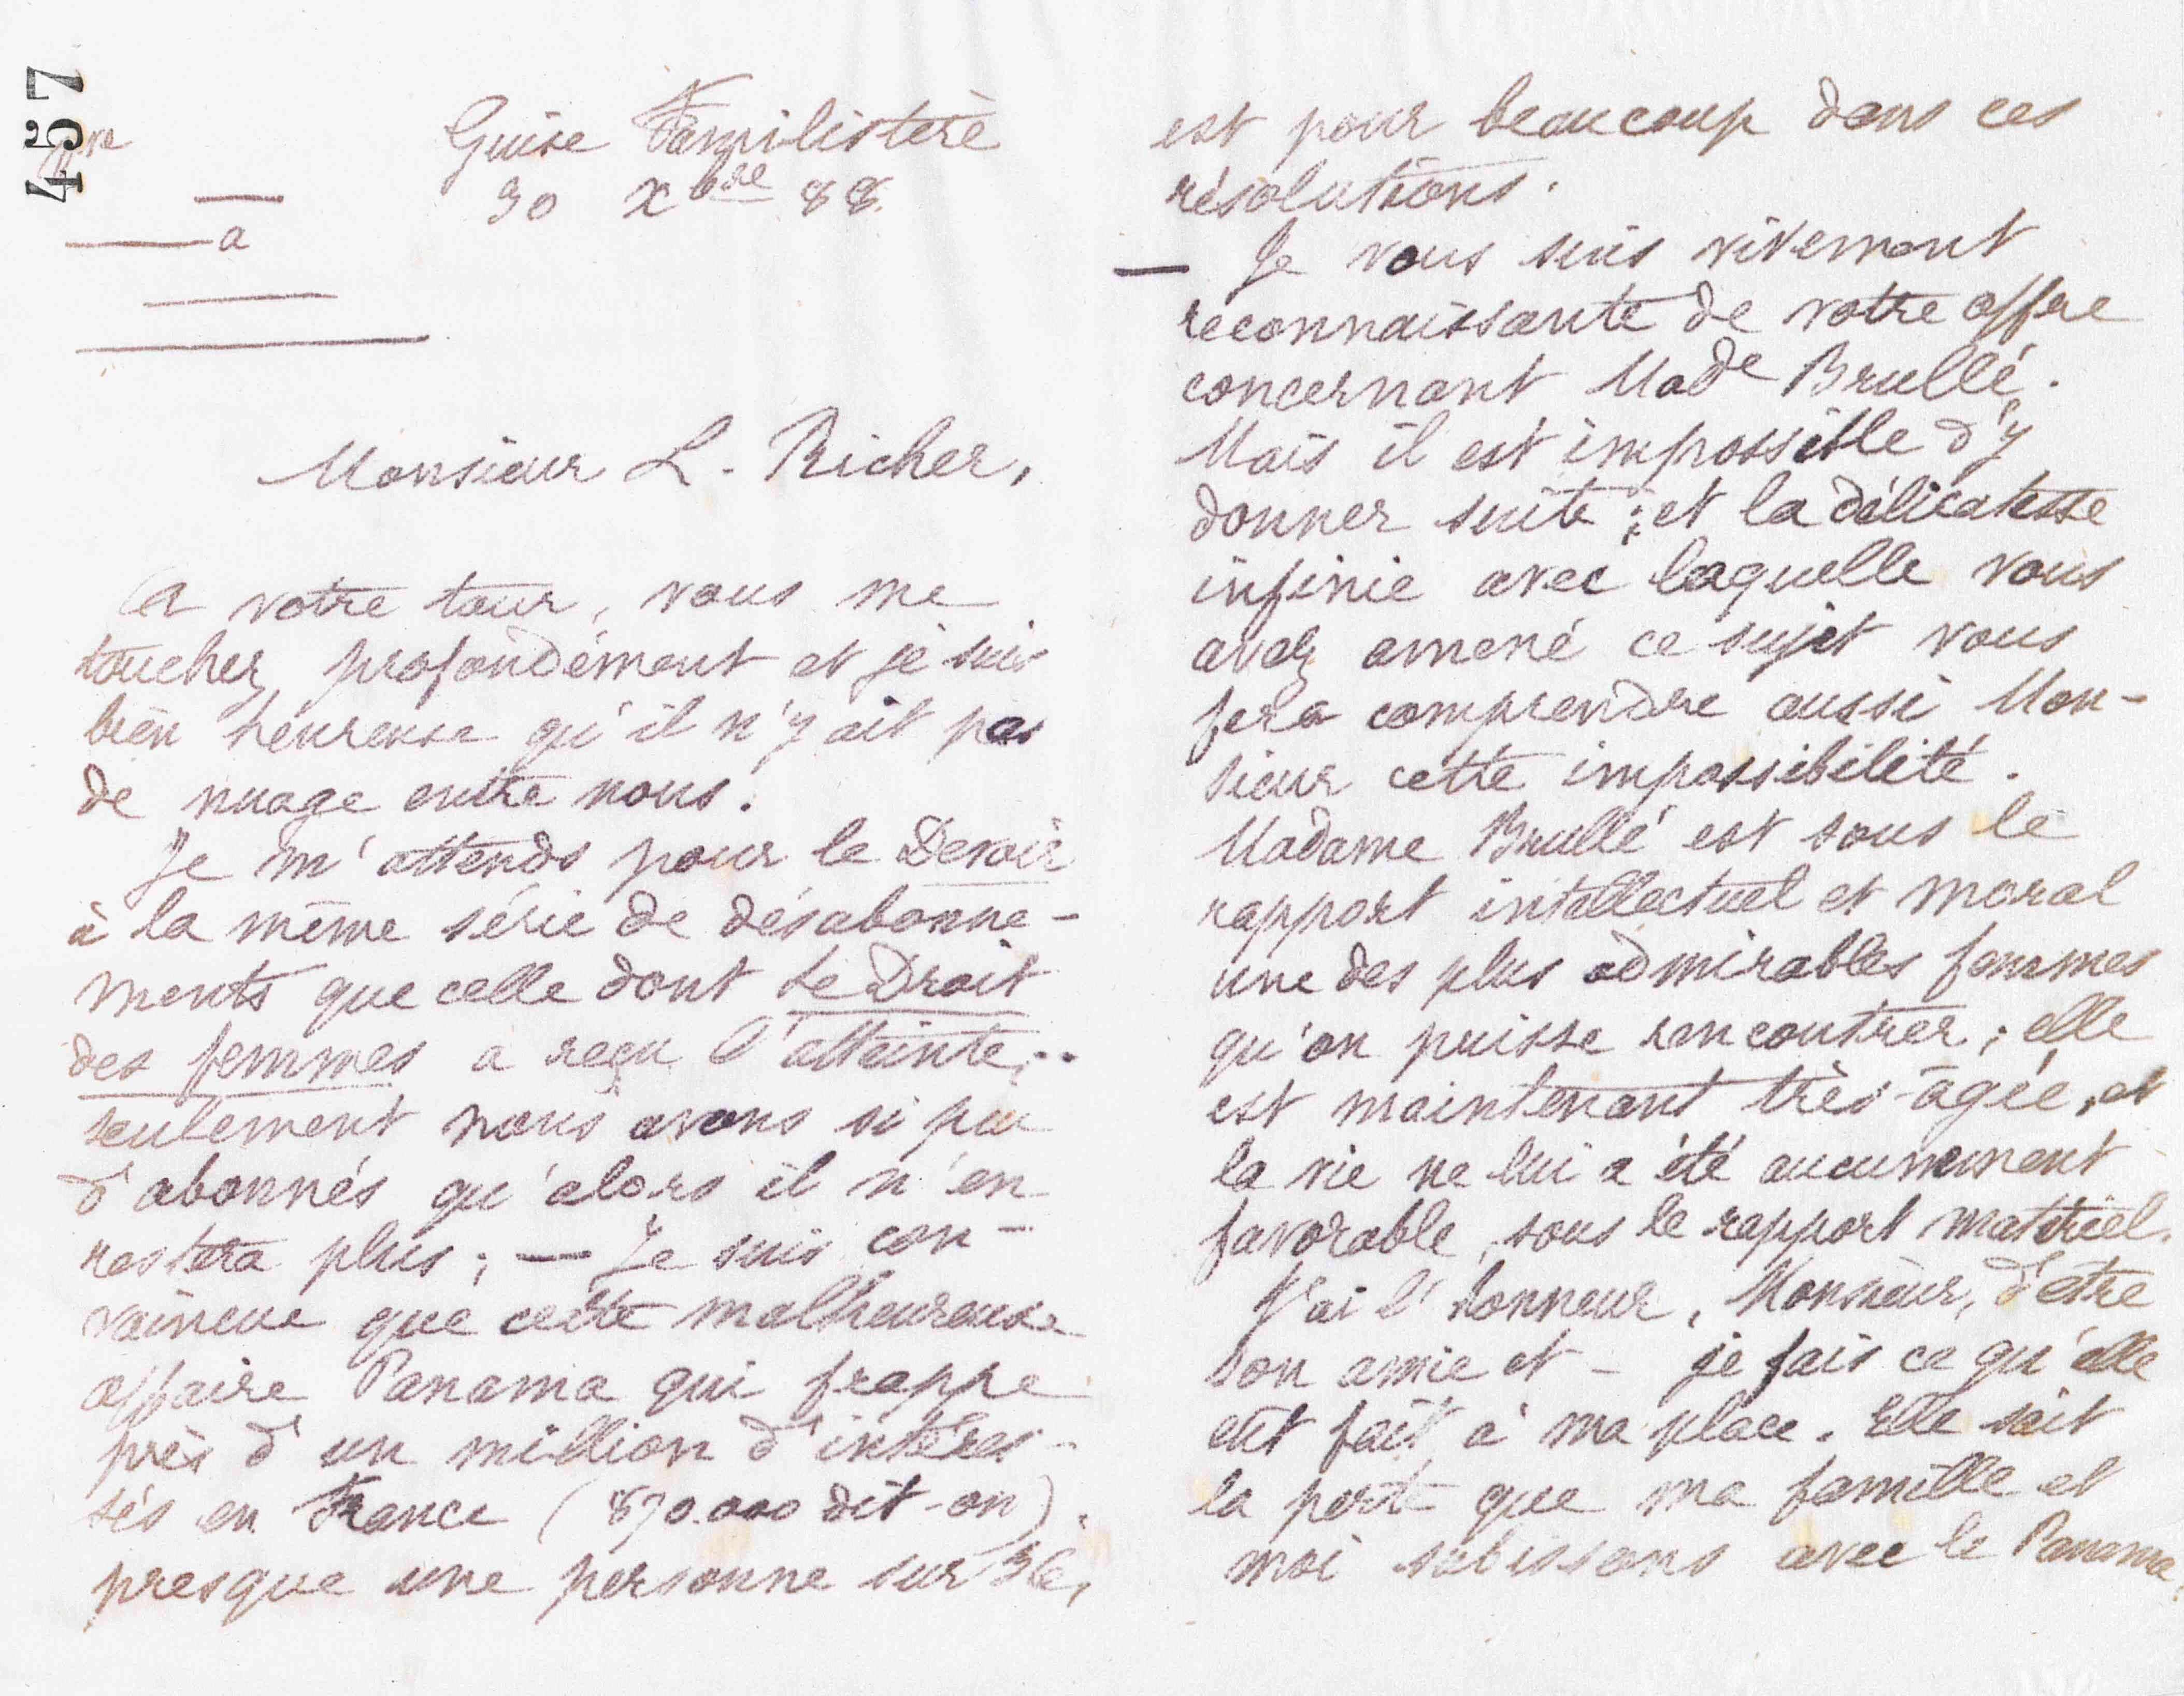 457
Guise Familistère
30 Xbre 88.
a
Monsieur L. Richer,
A votre tour, vous me
touchez profondément et je suis
bien heureuse qu'il n'y ait pas
de nuage entre nous.
Je m'attends pour le Devoir
à la même série de désabonne-
ments que celle dont Le Droit
des femmes a reçu l'atteinte;..
seulement nous avons si peu
d'abonnés qu'alors il n'en
restera plus; — Je suis con-
vaincue que cette malheureuse
affaire Panama qui frappe
près d'un million d'intéres-
sés en France (870.000 dit-on),
presque une personne sur
est pour beaucoup dans ces
résolutions.
— Je vous suis vivement
reconnaissante de votre offre
concernant Made Brullé.
Mais il est impossible d'y
donner suite; et la délicatesse
infinie avec laquelle vous
avez amené ce sujet vous
fera comprendre aussi Mon-
sieur cette impossibilité.
Madame Brullé est sous le
rapport intellectuel et moral
une des plus admirables femmes
qu'on puisse rencontrer; elle
est maintenant très-âgée, et
la vie ne lui a été aucunement
favorable, sous le rapport matériel.
J'ai l'honneur, Monsieur, d'être
son amie et - je fais ce qu'elle
eût fait à ma place. Elle sait
la perte que ma famille et
moi subissons avec le Panama.